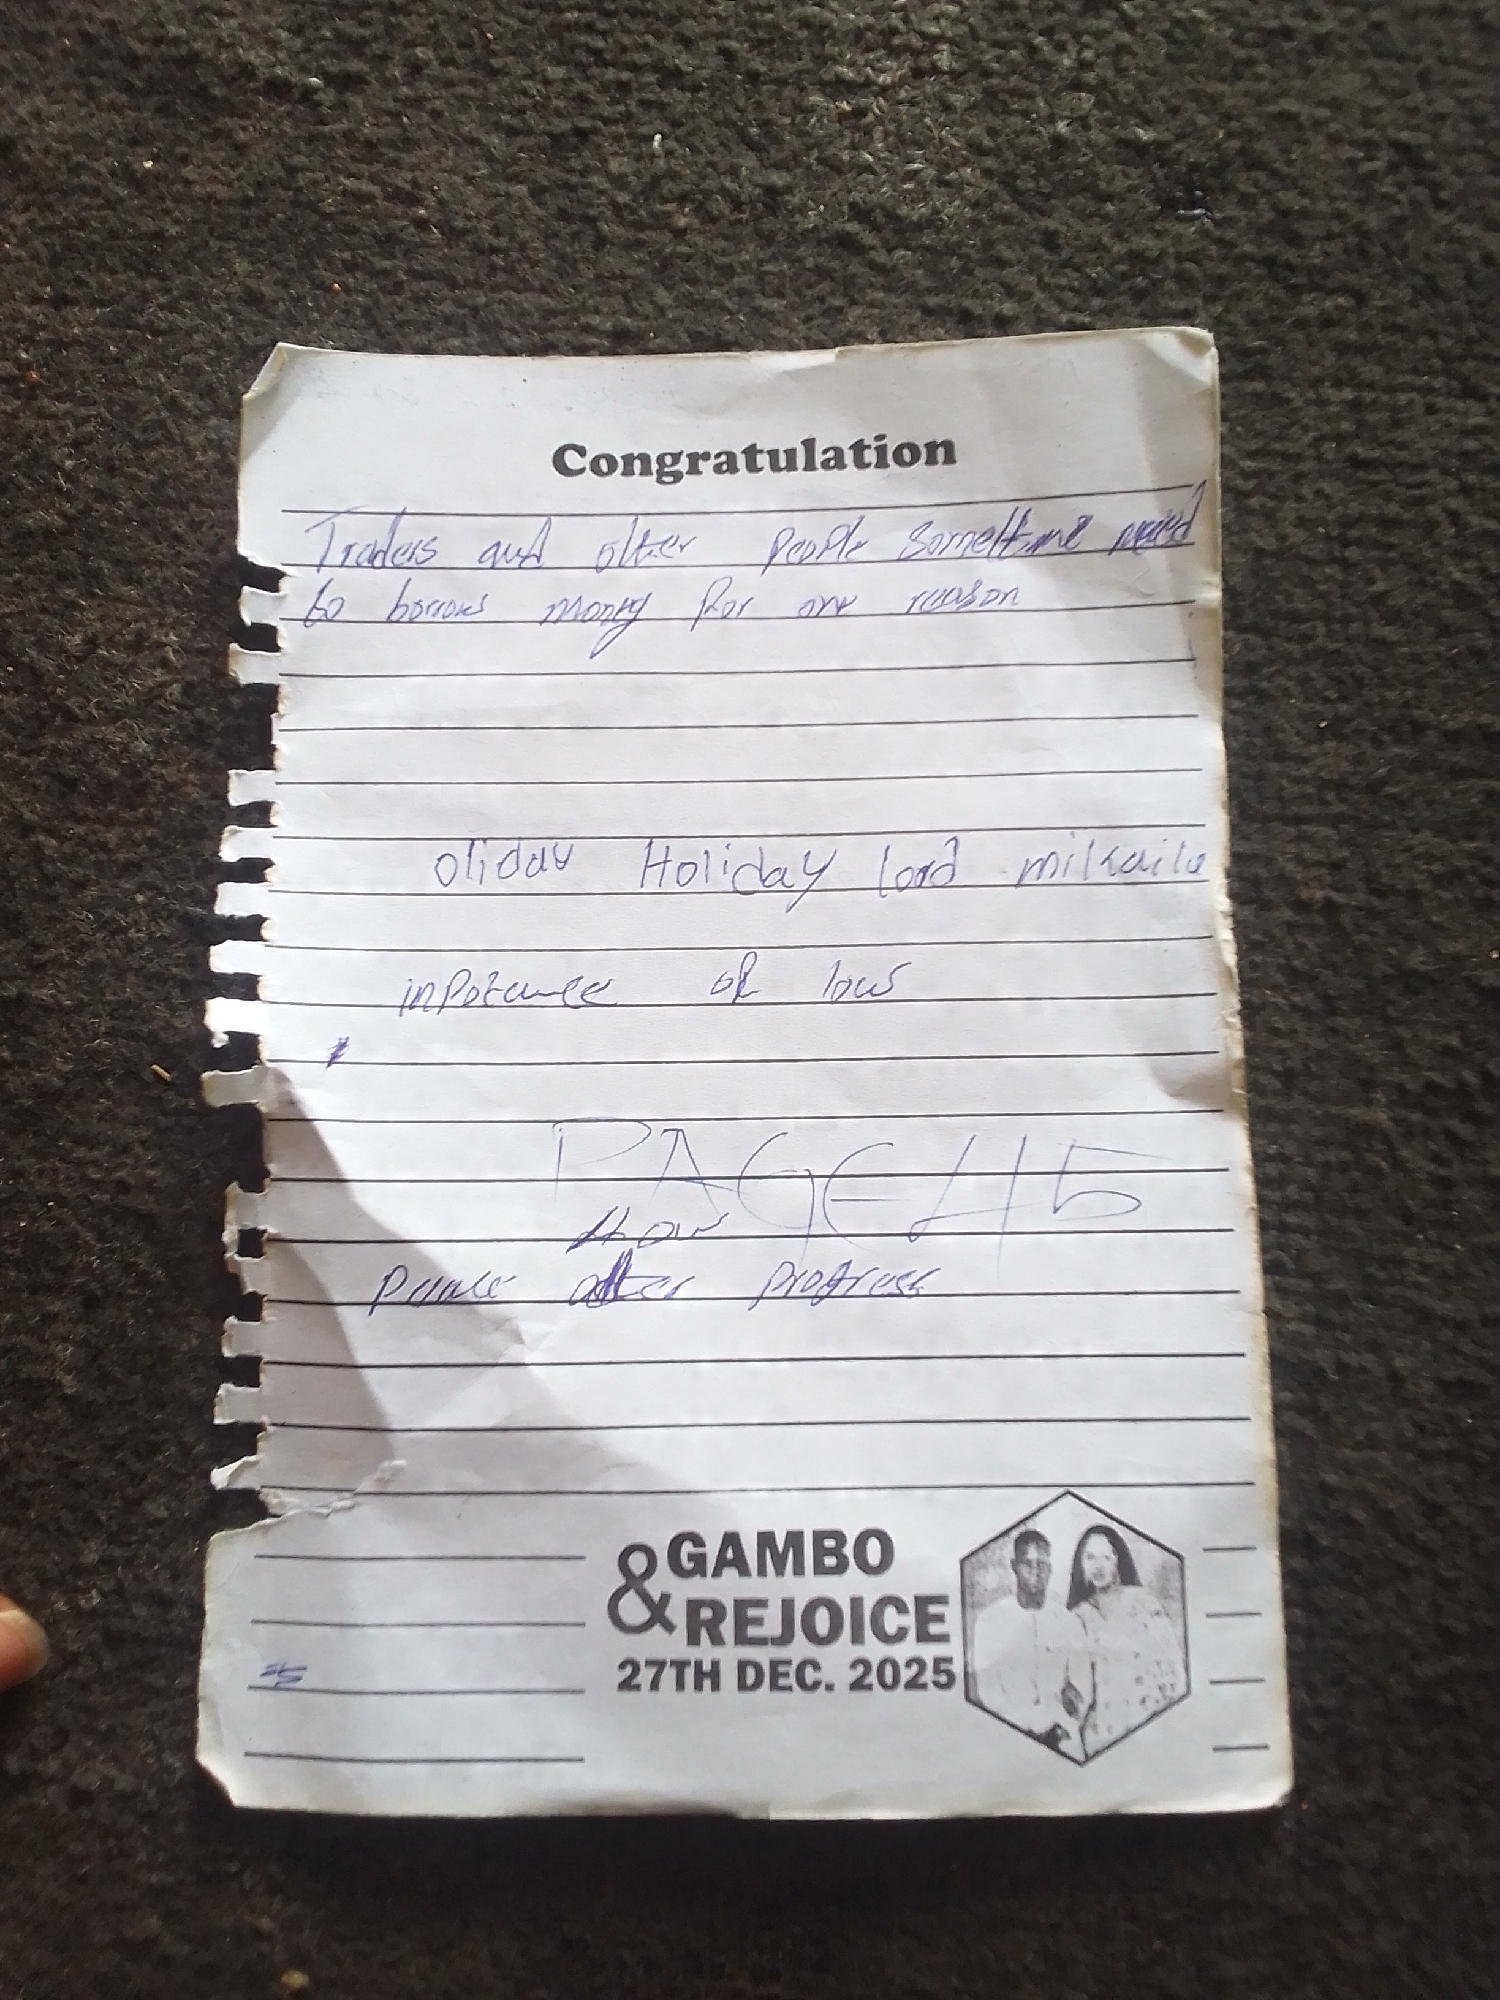 Congratulation
Traders and other people sometime need
to borrows money for one reason
oliday Holiday lord mikaila
inpotance of laws
PAGE 45
How
Peace after progress
GAMBO
& REJOICE
27TH DEC. 2025